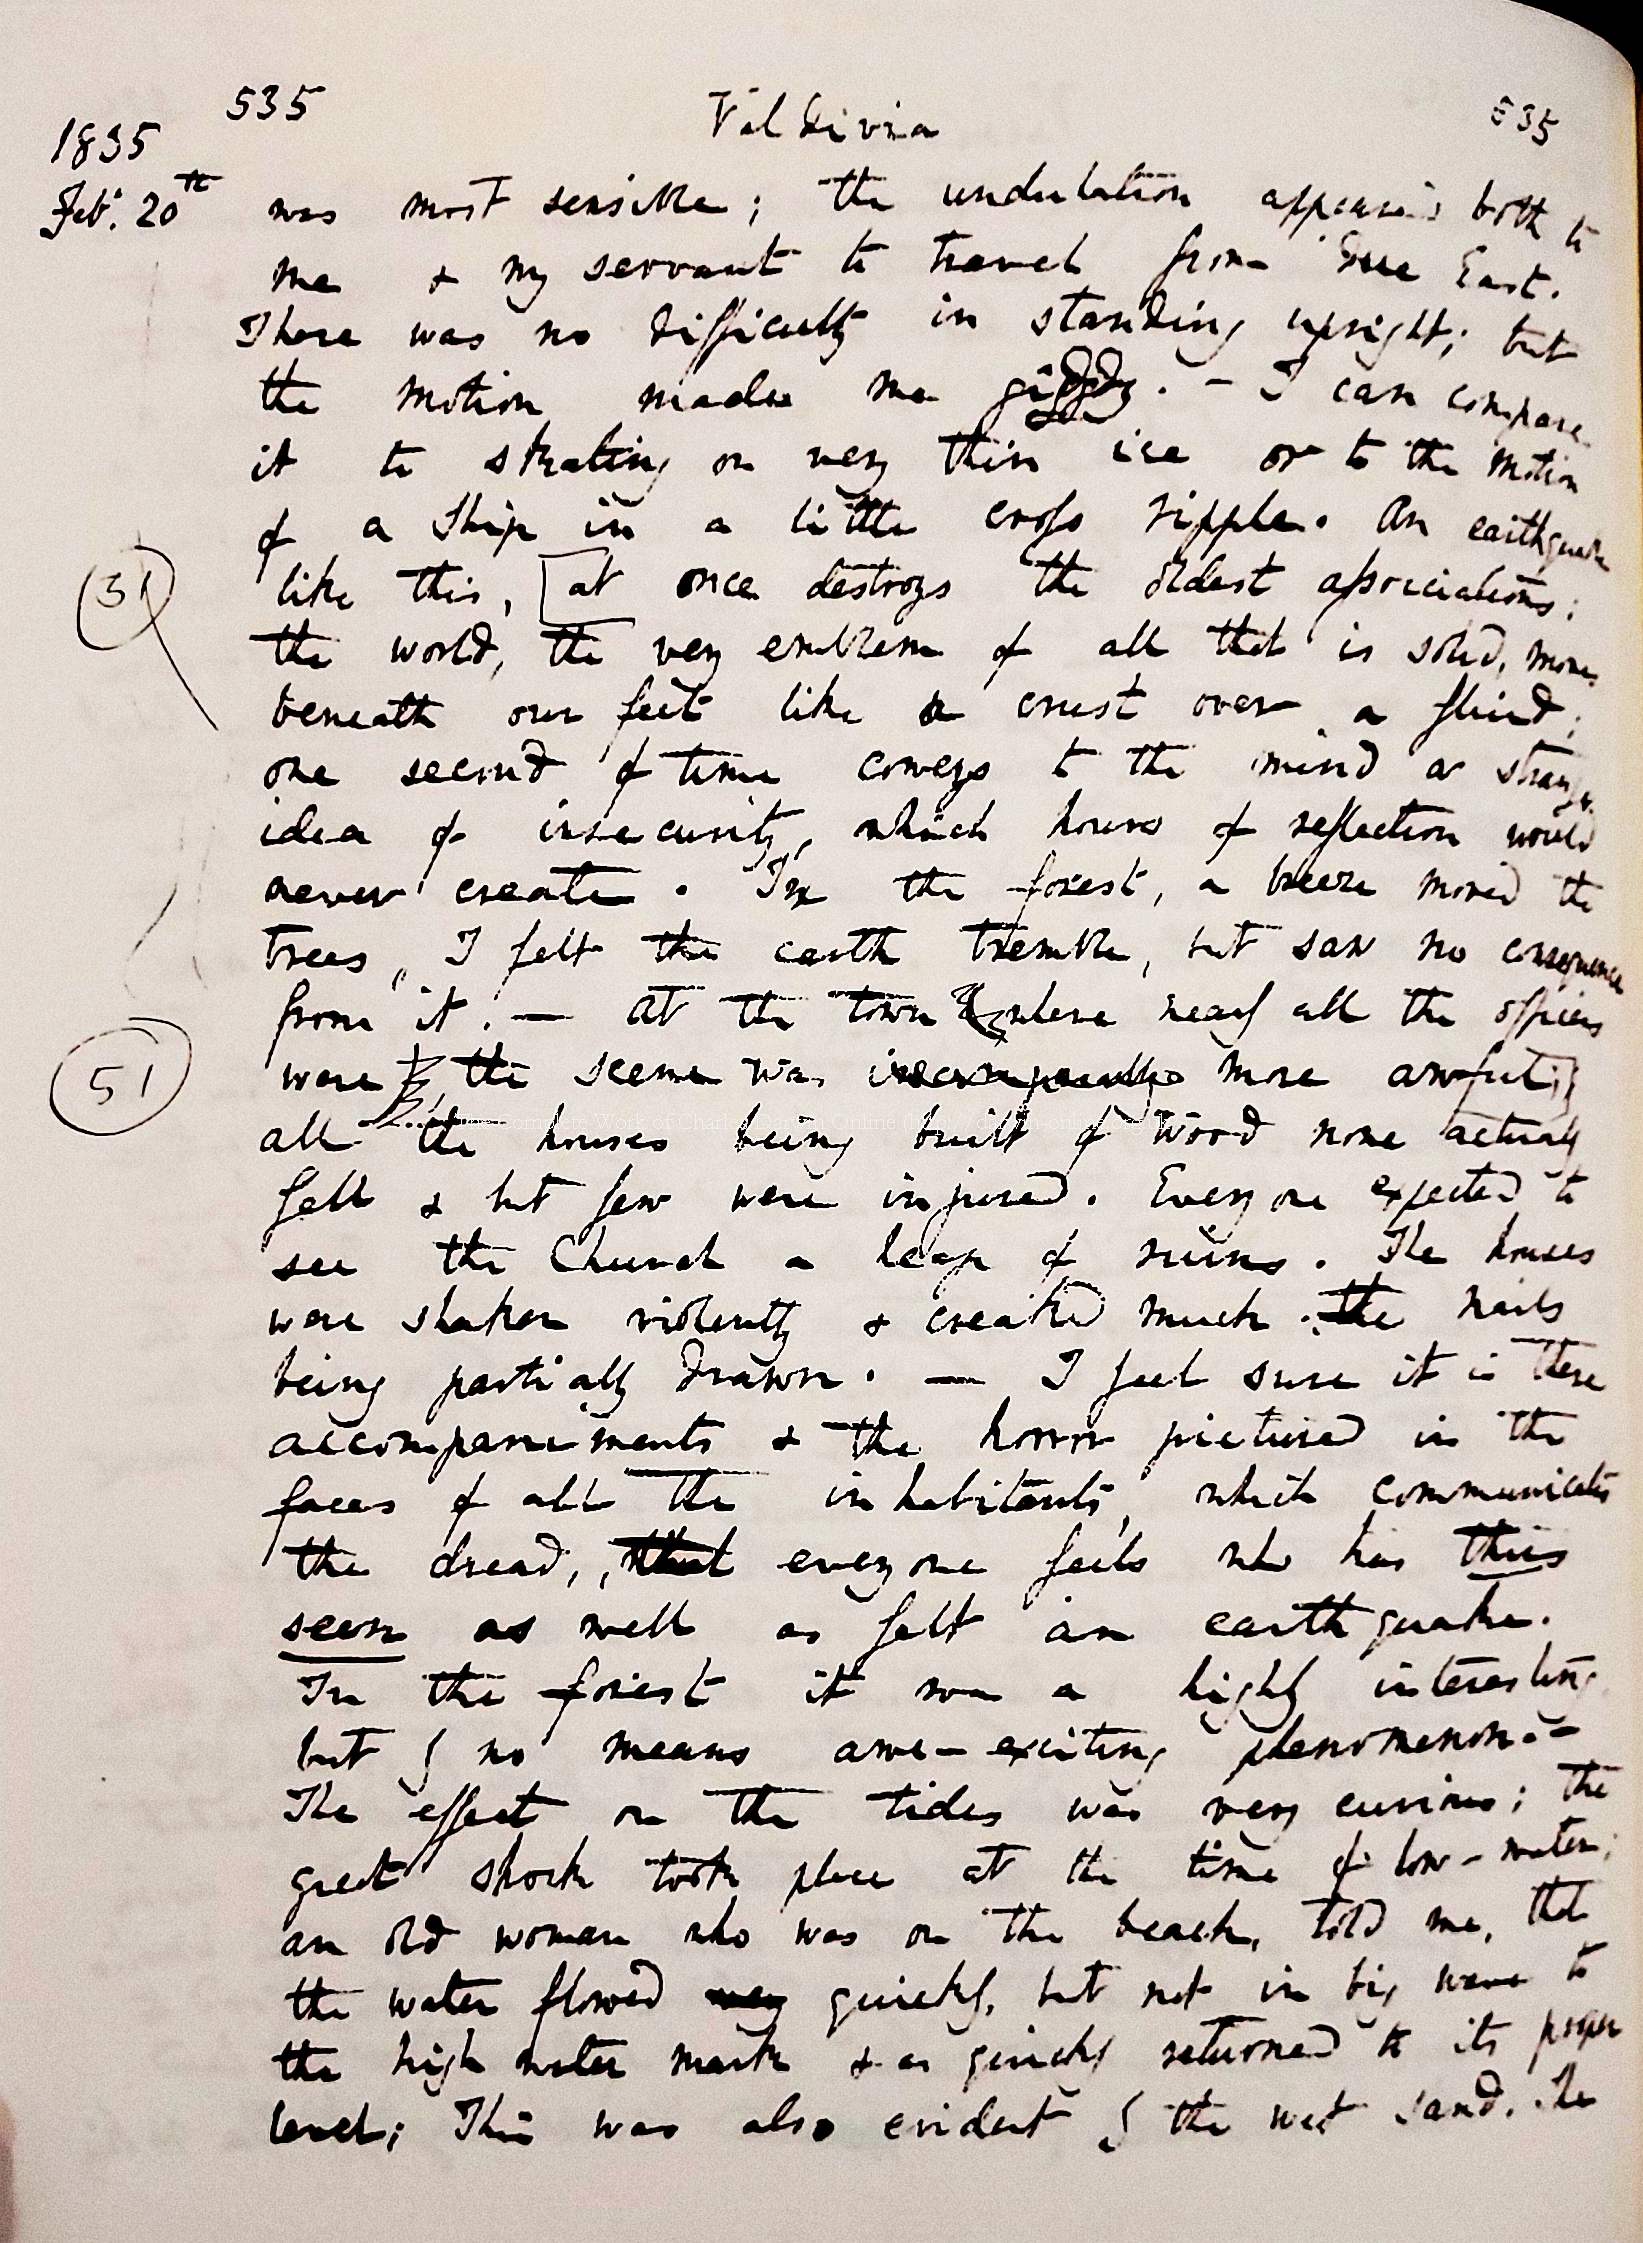 535 Valdivia 535
1835
Feb. 20th was most sensible; the undulation appeared both to
me & my servant to travel from due East.
There was no difficulty in standing upright; but
the motion made me giddy. — I can compare
it to skating on very thin ice or to the motion
of a ship in a little cross ripple. An earthquake
(51) like this, [at once destroys the oldest associations;
the world, the very emblem of all that is solid, moves
beneath our feet like a crust over a fluid;
one second of time conveys to the mind a strange
idea of insecurity, which hours of reflection would
never create. In the forest, a breeze moved the
trees, I felt the earth tremble, but saw no consequence
from it. — At the town where nearly all the officers
(51) were, the scene was more awful;
all the houses being built of wood none actually
fell & but few were injured. Every one expected to
see the Church a heap of ruins. The houses
were shaken violently & creaked much, the nails
being partially drawn. — I feel sure it is these
accompaniments & the horror pictured in the
faces of all the inhabitants, which communicates
the dread, that every one feels who has thus
seen as well as felt an earthquake.
In the forest it was a highly interesting
but by no means awe-exciting phenomenon. —
The effect on the tides was very curious; the
great shock took place at the time of low-water;
an old woman who was on the beach, told me, that
the water flowed very quickly, but not in big waves to
the high water mark & as quickly returned to its proper
level; This was also evident by the wet sand. The